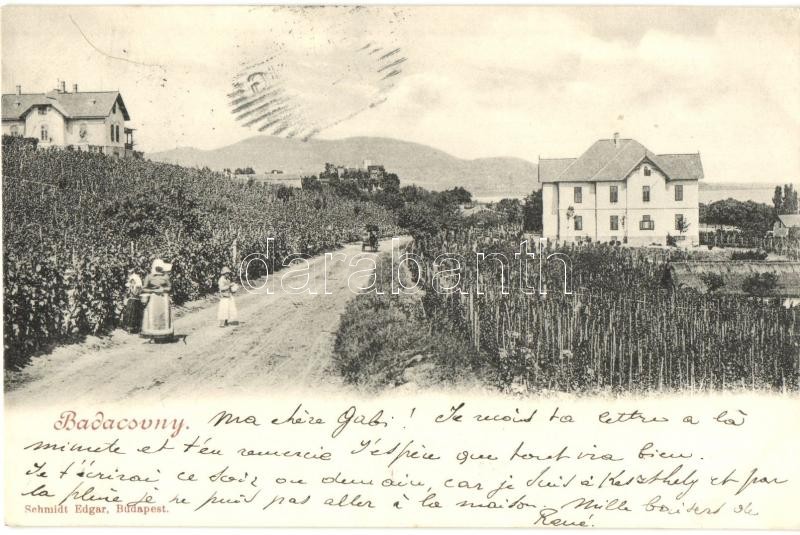 darabanth
Badacsony. Ma chère Gabi! Je reçois ta lettre à la
minute et t'en remercie J'espère que tout ira bien.
Je t'écrirai ce soir ou demain, car je suis à Keszthely et par
la pluie je ne puis pas aller à la maison. Mille baisers de
René.
Schmidt Edgar, Budapest.